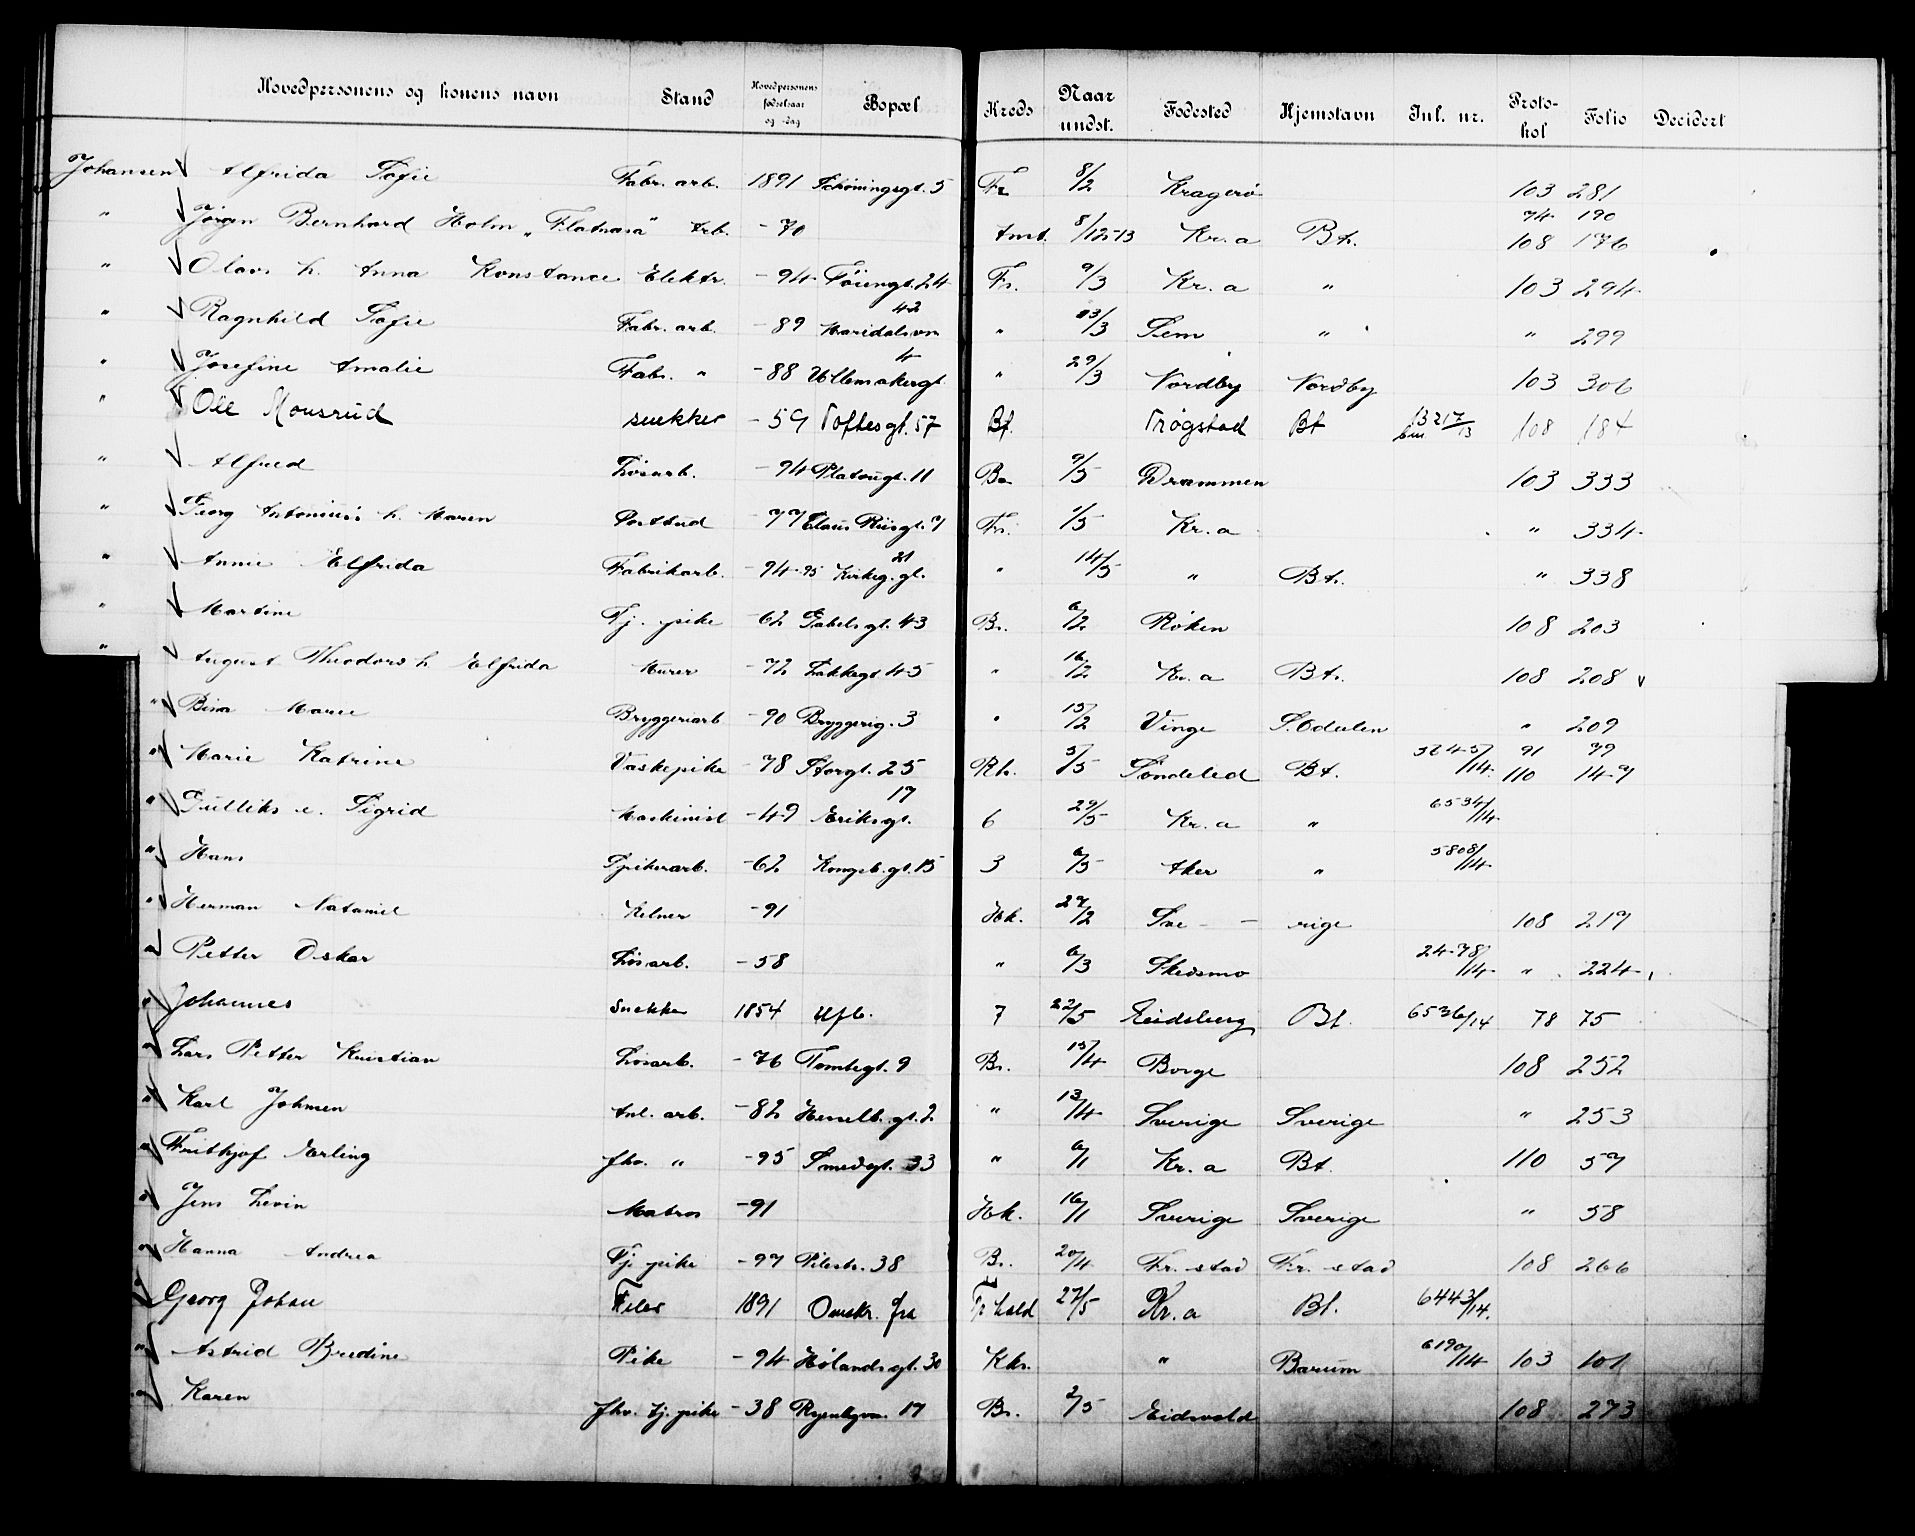 Hovedpersonens og konens navn Stand Hovedpersonens fødselsaar og -dag Bopæl Kreds Naar undst. Fødested Hjemstavn Jnl. nr. Protokol Folio Decidert
Johansen Alfrida Sofie Fabr. arb. 1891 Schøningsgt. 5 Fr. 8/2 Kragerø 103 281
" Jørgen Bernhard Holm „Flatnasa" Arb. -70 Amt. 8/12-13 Kr. a Bt. 74 190 108 176
" Olavs h. Anna Konstance Elektr. -94 Tøiengt. 24 Fr. 9/3 Kr. a " 103 294
" Ragnhild Sofie Fabr. arb. -89 Maridalsvn 42 " 13/3 Sem " " 299
" Josefine Amalie Fabr. " -88 Ullensakergt. 4 " 29/3 Nordby Nordby 103 306
" Ole Mousrud snekker -59 Toftesgt. 57 Bt. Trøgstad Bt 108 184
" Alfred Løsarb. -94 Platougt. 11 Br. 9/5 Drammen 103 333
" Georg Antonius h. Maren Postbud -77 Claus Riisgt. 7 Fr. 1/5 Kr. a " 334
" Annie Elfrida Fabrikarb. -94-95 Kirkeg. gt. 21 " 14/5 " Bt. " 338
" Martine Tj. pike -62 Gabelsgt. 43 Br. 6/2 Røken 108 203
" August Theodors h Elfrida Murer -72 Lakkegt 45 " 16/2 Kr. a Bt. 108 208
" Bina Marie Bryggeriarb -90 Bryggerig. 3 " 13/2 Vinge S. Odalen " 209
" Marie Katrine Vaskepike -78 Storgt. 25 Rh. 5/5 Søndeled Bt. 5245/14 91 79 110 147
" Gulliks e. Sigrid Maskinist -49 Eriksgt. 17 6 29/5 Kr. a " 6534/14
" Hans Spikerarb. -62 Kongsb. gt. 15 3 6/5 Aker " 5808/14
" Herman Nataniel Kelner -91 Hk. 27/2 Sve - rige 108 219
" Petter Oskar Løsarb. -58 " 6/3 Skedsmo 2478/14 " 224
" Johannes Snekker 1854 Ufb. 7 22/5 Eidsberg Bt. 6536/14 78 75
" Lars Petter Kristian Løsarb. -76 Tomtegt. 9 Br. 15/4 Borge 108 252
" Karl Johnsen Anl. arb. -82 Hesselb. gt. 2 " 13/4 Sverige Sverige " 253
" Frithjof Erling fhv. " -95 Smedgt. 33 " 6/1 Kr. a Bt. 110 57
" Jens Levin Matros -91 Hk. 16/1 Sverige Sverige " 58
" Hanna Andrea Tj. pike -97 Pilestr. 38 Br. 20/4 Fr. stad Fr. stad 108 266
" Georg Johan Filer 1891 Omstr. fra Fr. hald 27/5 Kr. a Bt. 6443/14
" Astrid Bredine Pike -94 Hølandsgt. 30 Kkr. " Bærum 6190/14 103 101
" Karen fhv. tj. pike -38 Ryenbgvn. 17 Br. 2/5 Eidsvold 108 273